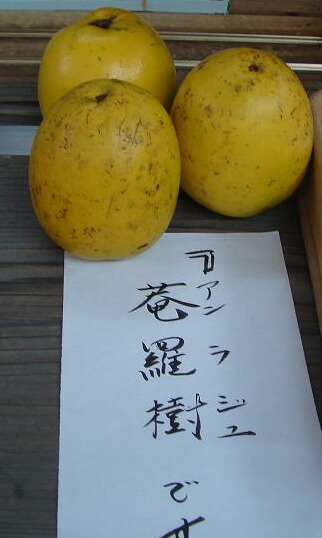 『菴羅樹です
アンラジュ